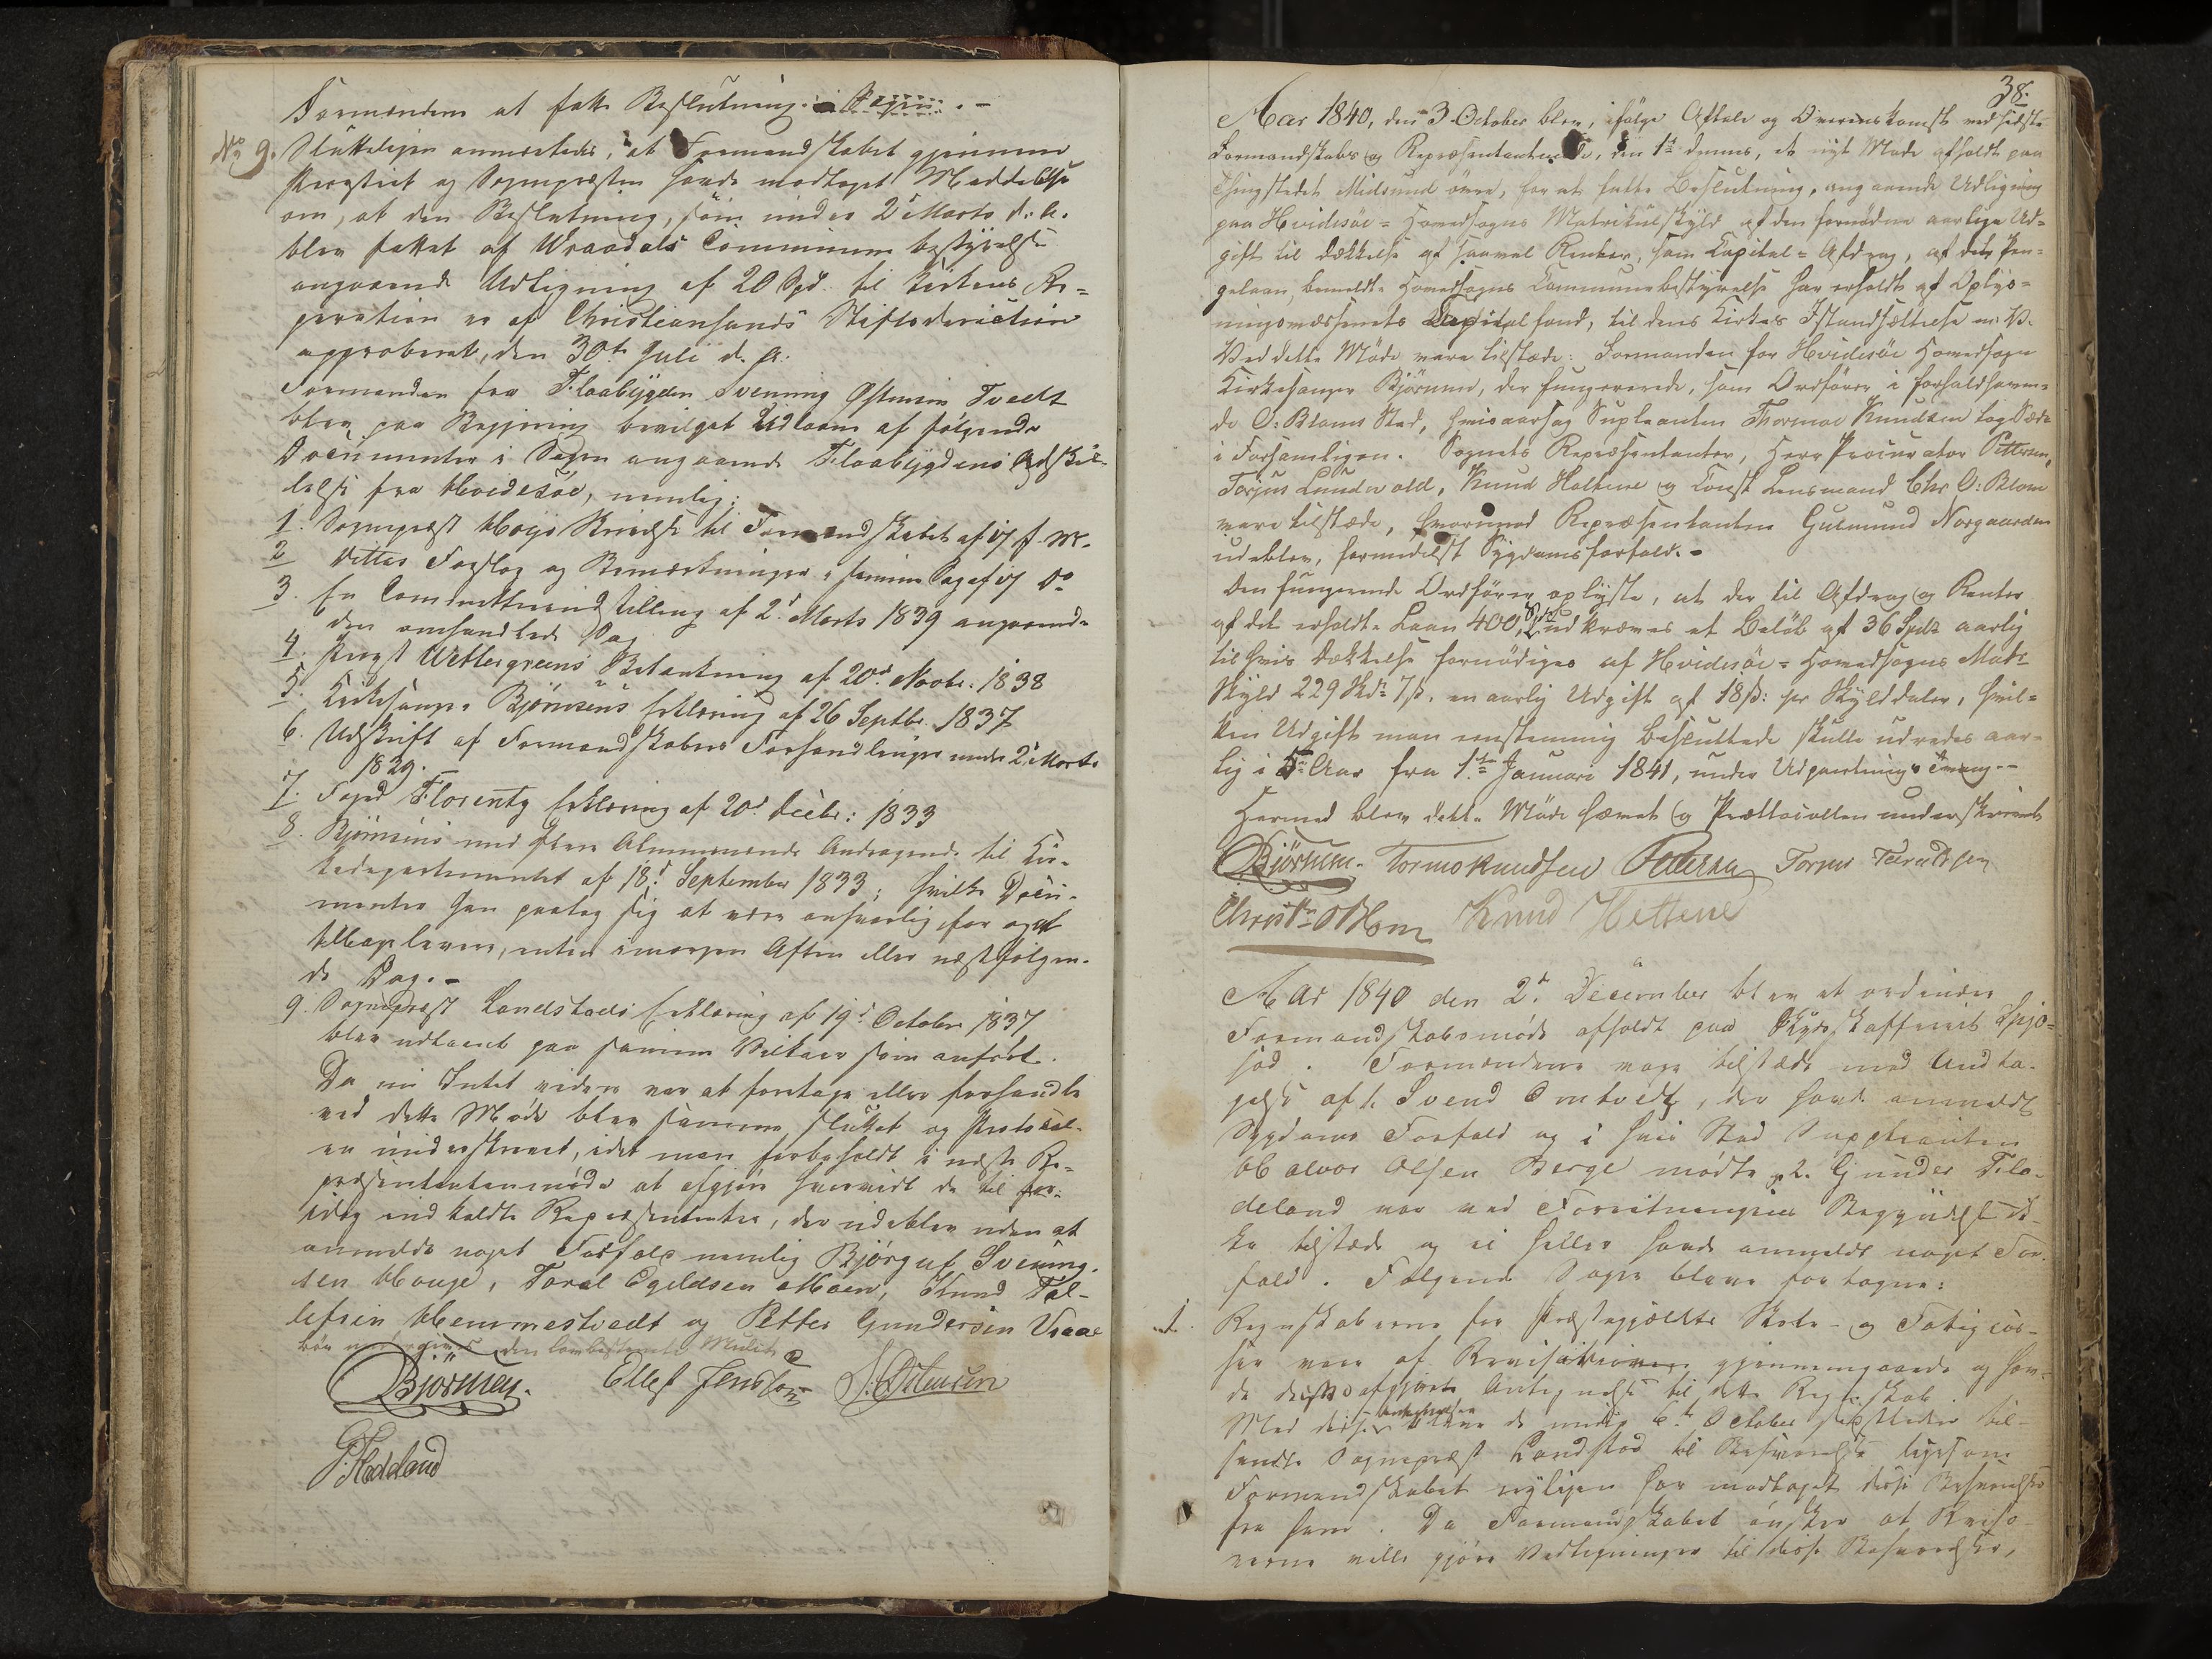 Formændene at fatte Beslutning i Sagen. -
No 9. Sluttelígen anmærkedes, at Formandskabet gjennem
Provstiet og Sognepræsten havde modtaget Meddelelse
om, at den Beslutning, som under 2d Marts d. A.
blev fattet af Wraadals Communes bestÿrelse
angaaende Udligning af 20 Spd. til Kirkens Re=
paration er af Christiansands Stiftsdirection
approberet, den 30te Juli d. A.
Formanden fra Flaabÿgden Svenning Østensen Tvedt
blev paa Begjering bevilget Udlaan af følgende
Documenter i Sagen angaaende Flaabÿgdens Adskil-
lelse fra Hvidesøe, nemlig:
1. Sognepræst Skrivelse til Formandskabet af 17 f. M.
2 Dettes Forslag og Bemærkninger i samme Sag af 17 do
3. En Committeeindstilling af 2d Marts 1839 angaaende
den omhandlede Sag
4. Provst Wettergreens Betænkning af 20d Novbr. 1838
5. Kirkesanger Björnsens Erklæring af 26 Septbr. 1837
6. Udskrift af Formandskabets Forhandlinger under 2d Marts
1839.
7. Foged Florentz Erklæring af 20d Decbr: 1833
8. Björnsens med flere Almuemænds Andragende til Kir-
kedepartementet af 18d September 1833; hvilke Docu-
menter han paatog sig at være ansvarlig for og at
tilbagelevere, enten imorgen Aften eller næstfølgen-
de Dag. -
9. Sognepræst Landstads Erklæring af 19d October 1837
blev udlaant paa samme Vilkaar som anført.
Da nu Intet videre var at foretage eller forhandle
ved dette Møde blev samme sluttet og Protocol-
en underskrevet, idet man forbeholdt i næste Re=
præsentantermøde at afgjöre hvorvidt de til
idag indkaldte Repræsentanter, der udebleve uden at
anmelde noget Forfald nemlig Bjørguf Svening-
sen Hauge, Toral Egildsen Moen, Knud Tal-
lefsen Hemmestvedt og Petter Gundersen Vraae
bör den lovbestemte Mulct
Björnsen. Ellef Jensson S: Østensen
G. Fladeland
38.
Aar 1840, den 3 October blev, ifölge Aftale og Overenskomst ved sidste
Formandskabs og Repræsentantmöde, den 1te dennes, et nyt Möde afholdt paa
Thingstedet Midsund övre, for at fatte Beslutning, angaaende Udligning
paa Hvidesøe= Hovedsogns Matrikulskÿld af den fornödne aarlige Ud=
gift til Dækkelse af saavel Renter, som Capital= Afdrag, af det Pen=
gelaan, bemeldte Hovedsogns Communebestÿrelse har erholdt af Oplys=
ningsvæsenets Capitalfond, til dens Kirkes Istandsættelse m: V.
Ved dette Möde vare tilstæde: Formanden for Hvidesøe Hovedsogn
Kirkesanger Björnsen, der fungerende, som Ordförer i forhaldhaven=
de O. Bloms Sted, hvisaarsag Supleanten Thormoe Knudsen tog Sæde
i Forsamlingen. Sognets Repræsentanter, Herr Procurator Pettersen,
Torjus Lundevold, Knud Haltene og Const. Lensmand Chr. O: Blom
vare tilstæde, hvorimod Repræsentanten Gudmund Norgaarden
udeblev, formedelst Sygdomsforfald. -
Den fungerende Ordförer oplyste, at der til Afdrag og Renter
af det erholdte Laan 400 Spd. udkræves et Belöb af 36 Spdr. aarlig
til hvis Dækkelse fornödiges af Hvidesøe= Hovedsogns Matr.
Skyld 229 Skdr. 7/ß. en aarlig Udgift af 18/ß: pr Skylddaler, hvil=
ken Udgift man eenstemmig besluttede skulle udredes aar-
lig i Aar fra 1te Januari 1841, under Udpantnings Tvang. -
Hermed blev dette Möde hævet og Prottocollen underskrevet
Björnsen. Tormo Knudsen Pettersen Torjus Tarudsen
Christn O Blom Knud Hettene
Aar 1840 den 2d December blev et ordinær
Formandskabsmøde afholdt paa Skydsskafferiet Spjo=
sod. Formændene vare tilstæde med Undta-
gelse af 1. Svend Omtvedt, der havde anmeldt
Sygdoms Forfald og i hvis Sted Suppleanten
Halvor Olsen Berge mødte, 2. Gunder Fla-
deland var ved Forretningens Begyndelse ik-
ke tilstæde og ei heller havde anmeldt noget For-
fald. Følgende Sager bleve foretagne:
1. Regnskaberne for Præstegjældets Skole- og Fattigcas-
ser vare af Revisorerne gjennemgaaede og hav-
de disse afgivet Antegnelser til dette Regnskab
Med disse Antegnelser bleve de under 6te October sidstleden til-
sendte Sognepræst Landstad til Besvarelse ligesom
Formandskabet nyligen har modtaget disse Besvarelser
fra ham. Da Formandskabet önsker at Reviso-
rerne ville gjöre Vedtegninger til disse Besvarelser,